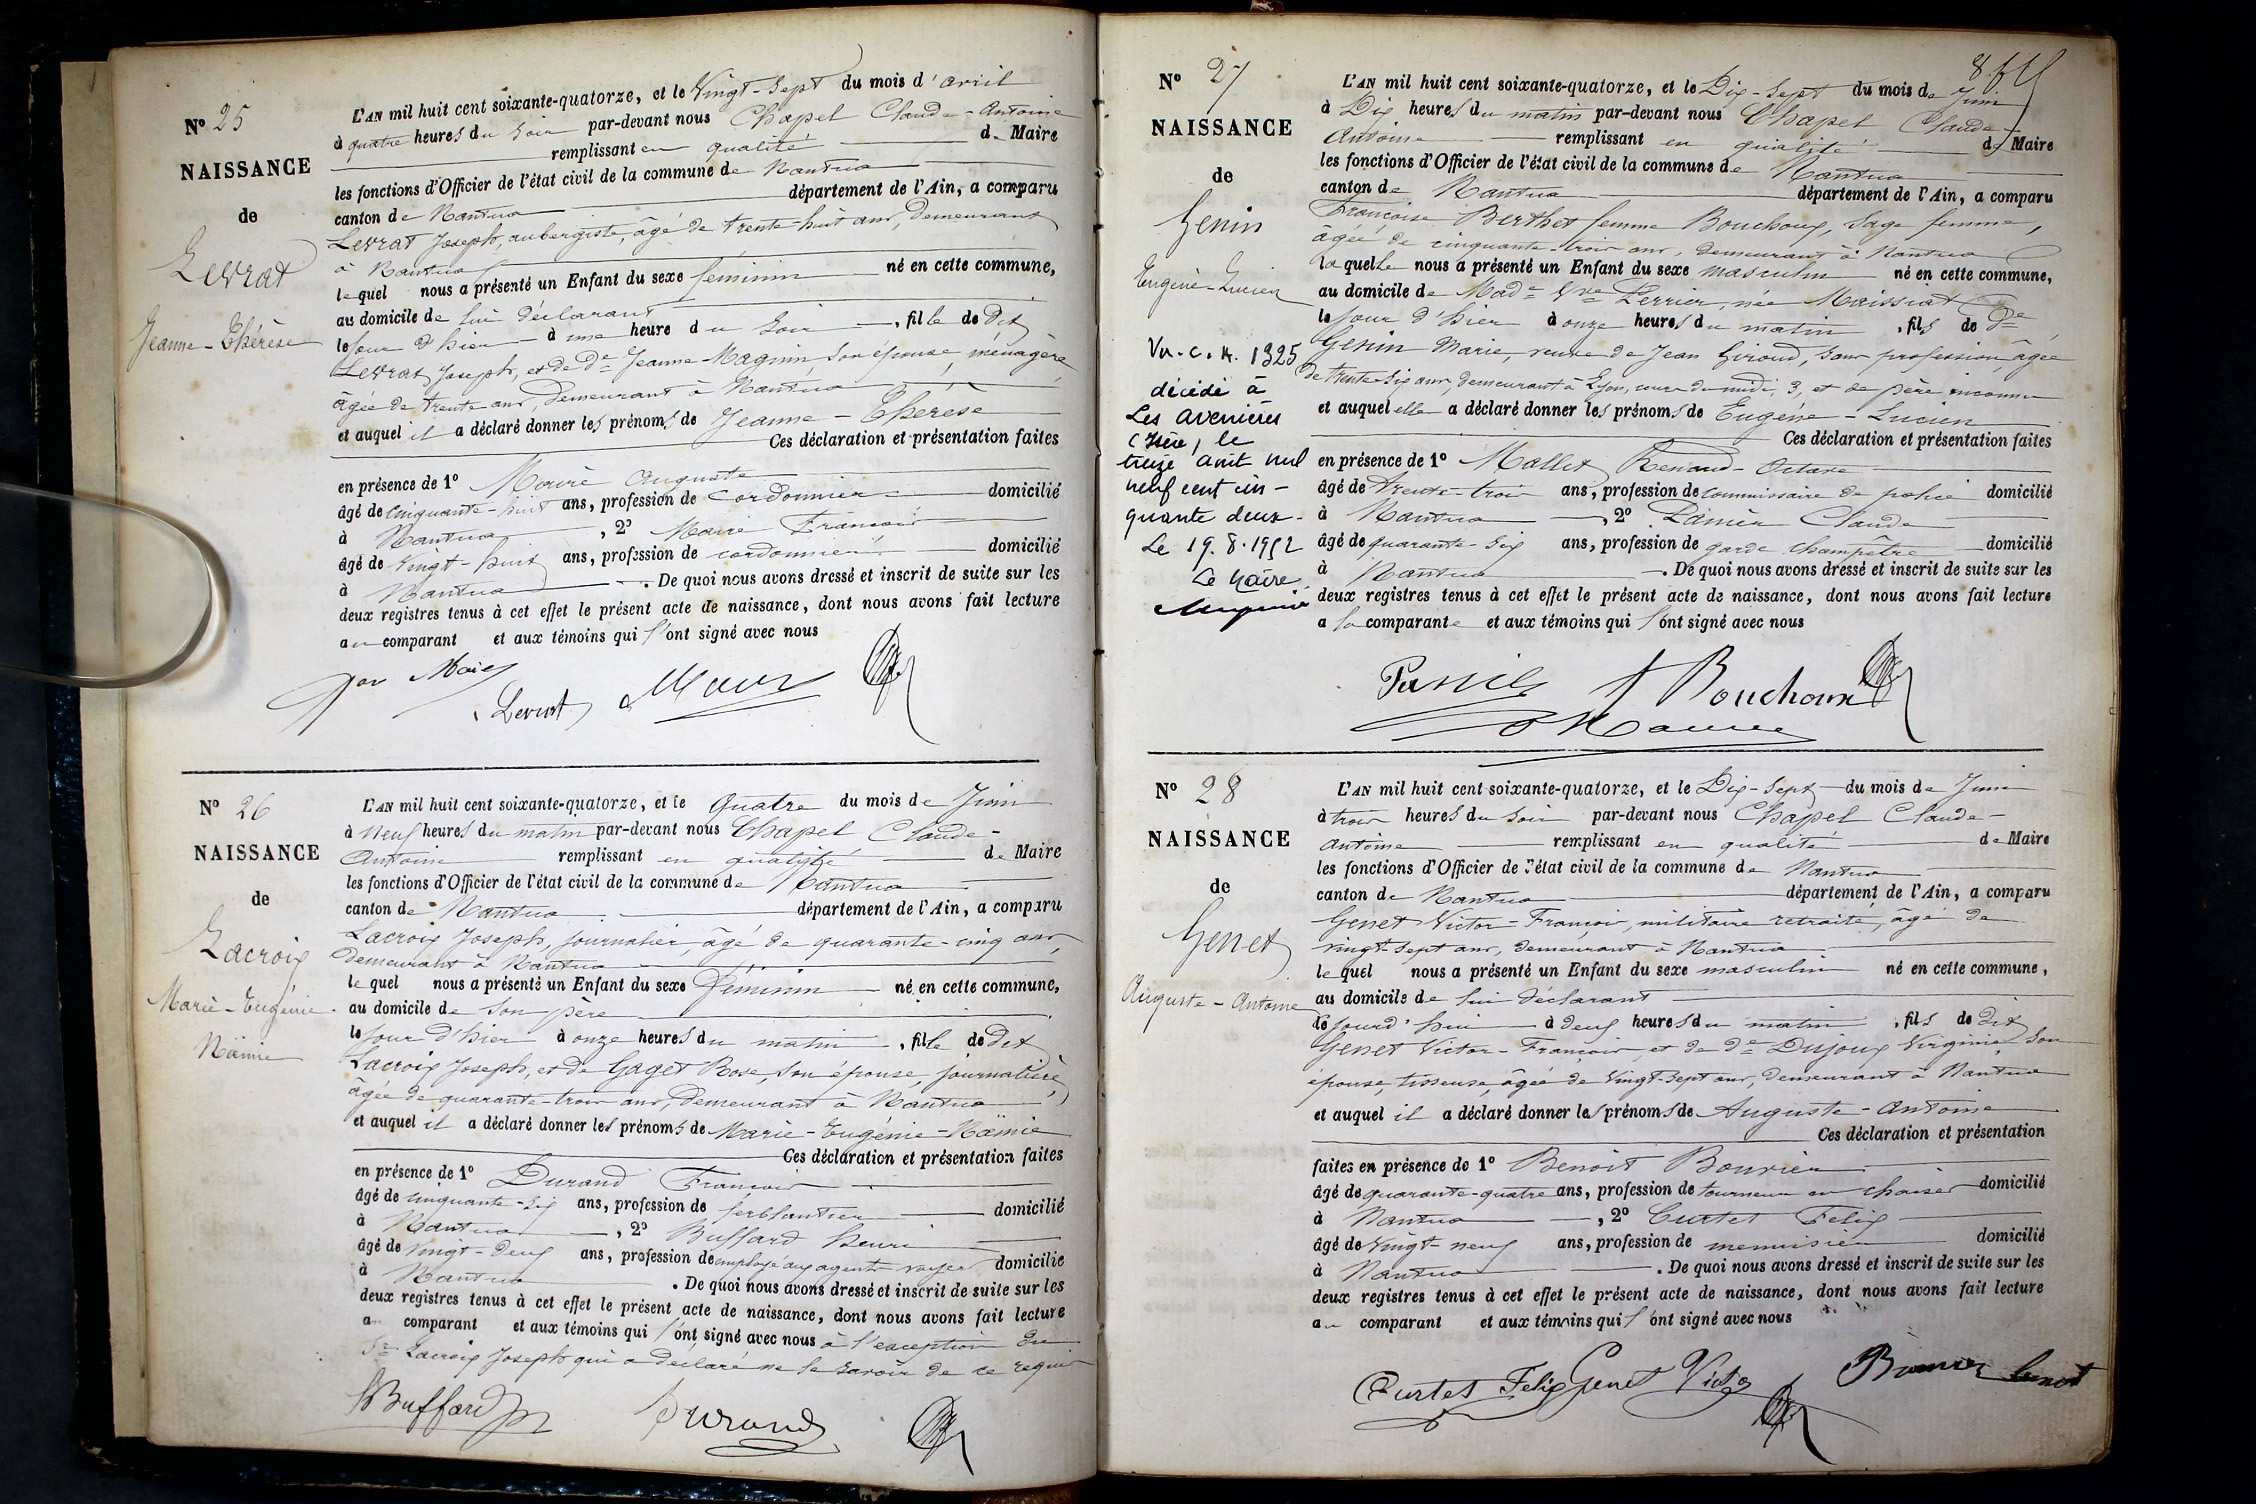 N° 25
NAISSANCE
de
Levrat
Jeanne-Thérèse
L'AN mil huit cent soixante-quatorze, et le Vingt-Sept du mois d'avril
à quatre heures du soir par-devant nous Chapel Claude-Antoine
remplissant en qualité de Maire
les fonctions d'Officier de l'état civil de la commune de Nantua
canton de Nantua département de l'Ain, a comparu
Levrat Joseph, aubergiste, âgé de trente huit ans, demeurant
à Nantua
lequel nous a présenté un Enfant du sexe féminin né en cette commune,
au domicile de lui déclarant
le jour d'hier à une heure du soir, fille de dit
Levrat Joseph, et de De Jeanne Magnin, son épouse, ménagère
âgée de trente ans, demeurant à Nantua
et auquel il a déclaré donner les prénoms de Jeanne-Thérèse
Ces déclaration et présentation faites
en présence de 1° Auguste
âgé de cinquante-huit ans, profession de cordonnier domicilié
à Nantua, 2° François
âgé de Vingt-huit ans, profession de cordonnier domicilié
à Nantua. De quoi nous avons dressé et inscrit de suite sur les
deux registres tenus à cet effet le présent acte de naissance, dont nous avons fait lecture
au comparant et aux témoins qui l'ont signé avec nous
Levrat
N° 26
NAISSANCE
de
Lacroix
Marie-Eugénie
Naïmie
L'AN mil huit cent soixante-quatorze, et le Quatre du mois de Juin
à neuf heures du matin par-devant nous Chapel Claude-
Antoine remplissant en qualité de Maire
les fonctions d'Officier de l'état civil de la commune de Nantua
canton de Nantua département de l'Ain, a comparu
Lacroix Joseph, journalier, âgé de quarante-cinq ans,
demeurant à Nantua
lequel nous a présenté un Enfant du sexe féminin né en cette commune,
au domicile de son père
le jour d'hier à onze heures du matin, fille de dit
Lacroix Joseph, et de Gaget Rose, son épouse, journalière,
âgée de quarante-trois ans, demeurant à Nantua
et auquel il a déclaré donner les prénoms de Marie-Eugénie-Naïmie
Ces déclaration et présentation faites
en présence de 1° Durand François
âgé de cinquante-six ans, profession de ferblantier domicilié
à Nantua, 2° Buffard Henri
âgé de Vingt-deux ans, profession de employé aux agents voyer domicilié
à Nantua. De quoi nous avons dressé et inscrit de suite sur les
deux registres tenus à cet effet le présent acte de naissance, dont nous avons fait lecture
au comparant et aux témoins qui l'ont signé avec nous à l'exception du
Sr Lacroix Joseph qui a déclaré ne le savoir de ce requis
Buffard Durand
N° 27
NAISSANCE
de
Genin
Eugène-Lucien
1325
décédé à
Les Avenières
(Isère) le
treize août mil
neuf cent cin-
quante deux.
Le 19.8.1952
Le Maire
8
L'AN mil huit cent soixante-quatorze, et le Dix-Sept du mois de Juin
à Dix heures du matin par-devant nous Chapel Claude-
Antoine remplissant en qualité de Maire
les fonctions d'Officier de l'état civil de la commune de Nantua
canton de Nantua département de l'Ain, a comparu
Françoise Berthet femme Bouchoux, sage femme,
âgée de cinquante-trois ans, demeurant à Nantua
Laquelle nous a présenté un Enfant du sexe masculin né en cette commune,
au domicile de Made Vve Perrier, née Maissiat
le jour d'hier à onze heures du matin, fils de De
Genin Marie, veuve de Jean Giroud, sans profession, âgée
de trente-six ans, demeurant à Lyon, cours du midi, 3, et de père inconnu
et auquel elle a déclaré donner les prénoms de Eugène-Lucien
Ces déclaration et présentation faites
en présence de 1° Mallet Renaud-Octave
âgé de trente-trois ans, profession de commissaire de police domicilié
à Nantua, 2° Claude
âgé de quarante-six ans, profession de garde champêtre domicilié
à Nantua. De quoi nous avons dressé et inscrit de suite sur les
deux registres tenus à cet effet le présent acte de naissance, dont nous avons fait lecture
a la comparante et aux témoins qui l'ont signé avec nous
f Bouchoux
N° 28
NAISSANCE
de
Genet
Auguste-Antoine
L'AN mil huit cent soixante-quatorze, et le Dix-Sept du mois de Juin
à trois heures du soir par-devant nous Chapel Claude-
Antoine remplissant en qualité de Maire
les fonctions d'Officier de l'état civil de la commune de Nantua
canton de Nantua département de l'Ain, a comparu
Genet Victor-François, militaire retraité, âgé de
vingt-sept ans, demeurant à Nantua
lequel nous a présenté un Enfant du sexe masculin né en cette commune,
au domicile de lui déclarant
le jourd'hui à deux heures du matin, fils de dit
Genet Victor-François, et de De Dujoux Virginie, son
épouse, tisseuse, âgée de vingt-sept ans, demeurant à Nantua
et auquel il a déclaré donner les prénoms de Auguste-Antoine
Ces déclaration et présentation
faites en présence de 1° Benoit Bouvier
âgé de quarante-quatre ans, profession de tourneur en chaises domicilié
à Nantua, 2° Curtet Felix
âgé de Vingt-neuf ans, profession de menuisier domicilié
à Nantua. De quoi nous avons dressé et inscrit de suite sur les
deux registres tenus à cet effet le présent acte de naissance, dont nous avons fait lecture
au comparant et aux témoins qui l'ont signé avec nous
Curtet Felix Genet Victor